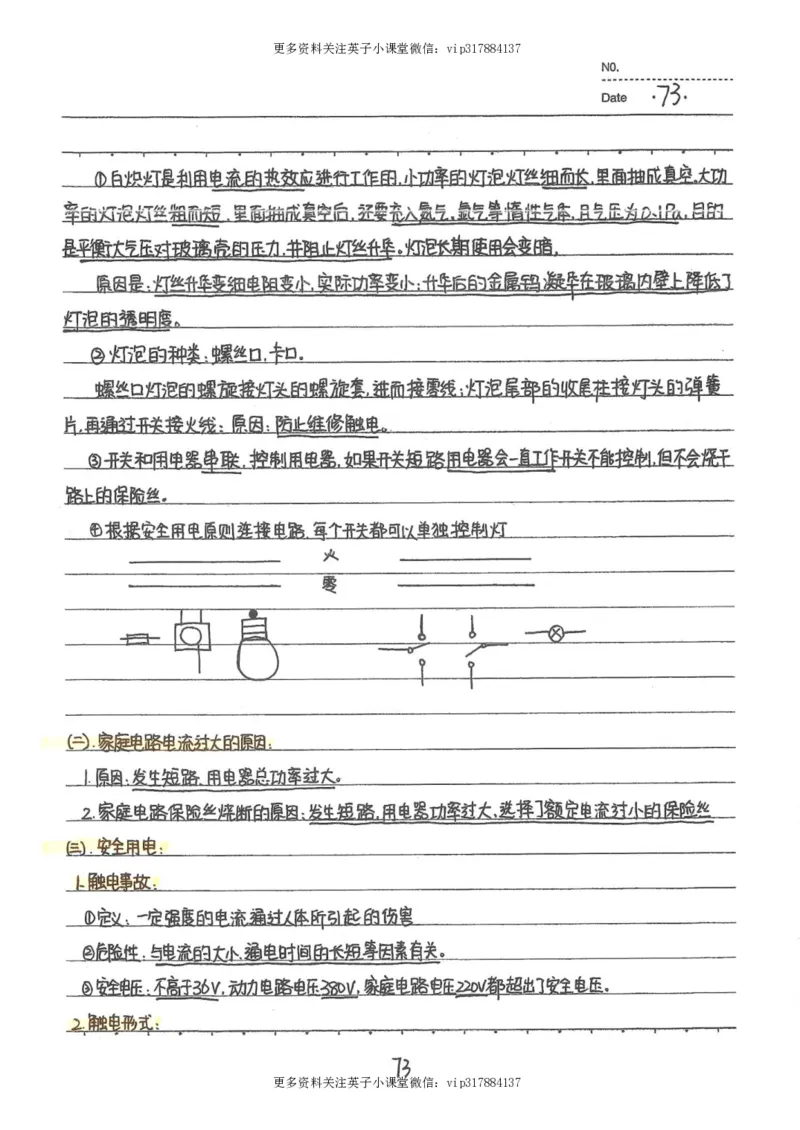 更多资料关注英子小课堂微信：vip317884137
NO.
Date ·73·
①白炽灯是利用电流的热效应进行工作的,小功率的灯泡灯丝细而长,里面抽成真空,大功
率的灯泡灯丝粗而短,里面抽成真空后,还要充入氮气,氩气等惰性气体,且气压为0.1Pa,目的
是平衡大气压对玻璃壳的压力,并阻止灯丝升华。灯泡长期使用会变暗,
原因是:灯丝升华变细电阻变小,实际功率变小;升华后的金属钨凝华在玻璃内壁上降低了
灯泡的透明度。
②灯泡的种类:螺丝口,卡口。
螺丝口灯泡的螺旋接灯头的螺旋套,进而接零线;灯泡尾部的收尾柱接灯头的弹簧
片,再通过开关接火线:原因:防止维修触电。
③开关和用电器串联,控制用电器,如果开关短路用电器会一直工作开关不能控制,但不会烧干
路上的保险丝。
④根据安全用电原则连接电路,每个开关都可以单独控制灯
火
零
(二).家庭电路电流过大的原因:
1.原因:发生短路,用电器总功率过大。
2.家庭电路保险丝烧断的原因:发生短路,用电器功率过大,选择了额定电流过小的保险丝
(三).安全用电:
1.触电事故:
①定义:一定强度的电流通过人体所引起的伤害
②危险性:与电流的大小,通电时间的长短等因素有关。
③安全电压:不高于36V,动力电路电压380V,家庭电路电压220V都超出了安全电压。
2.触电形式:
73
更多资料关注英子小课堂微信：vip317884137